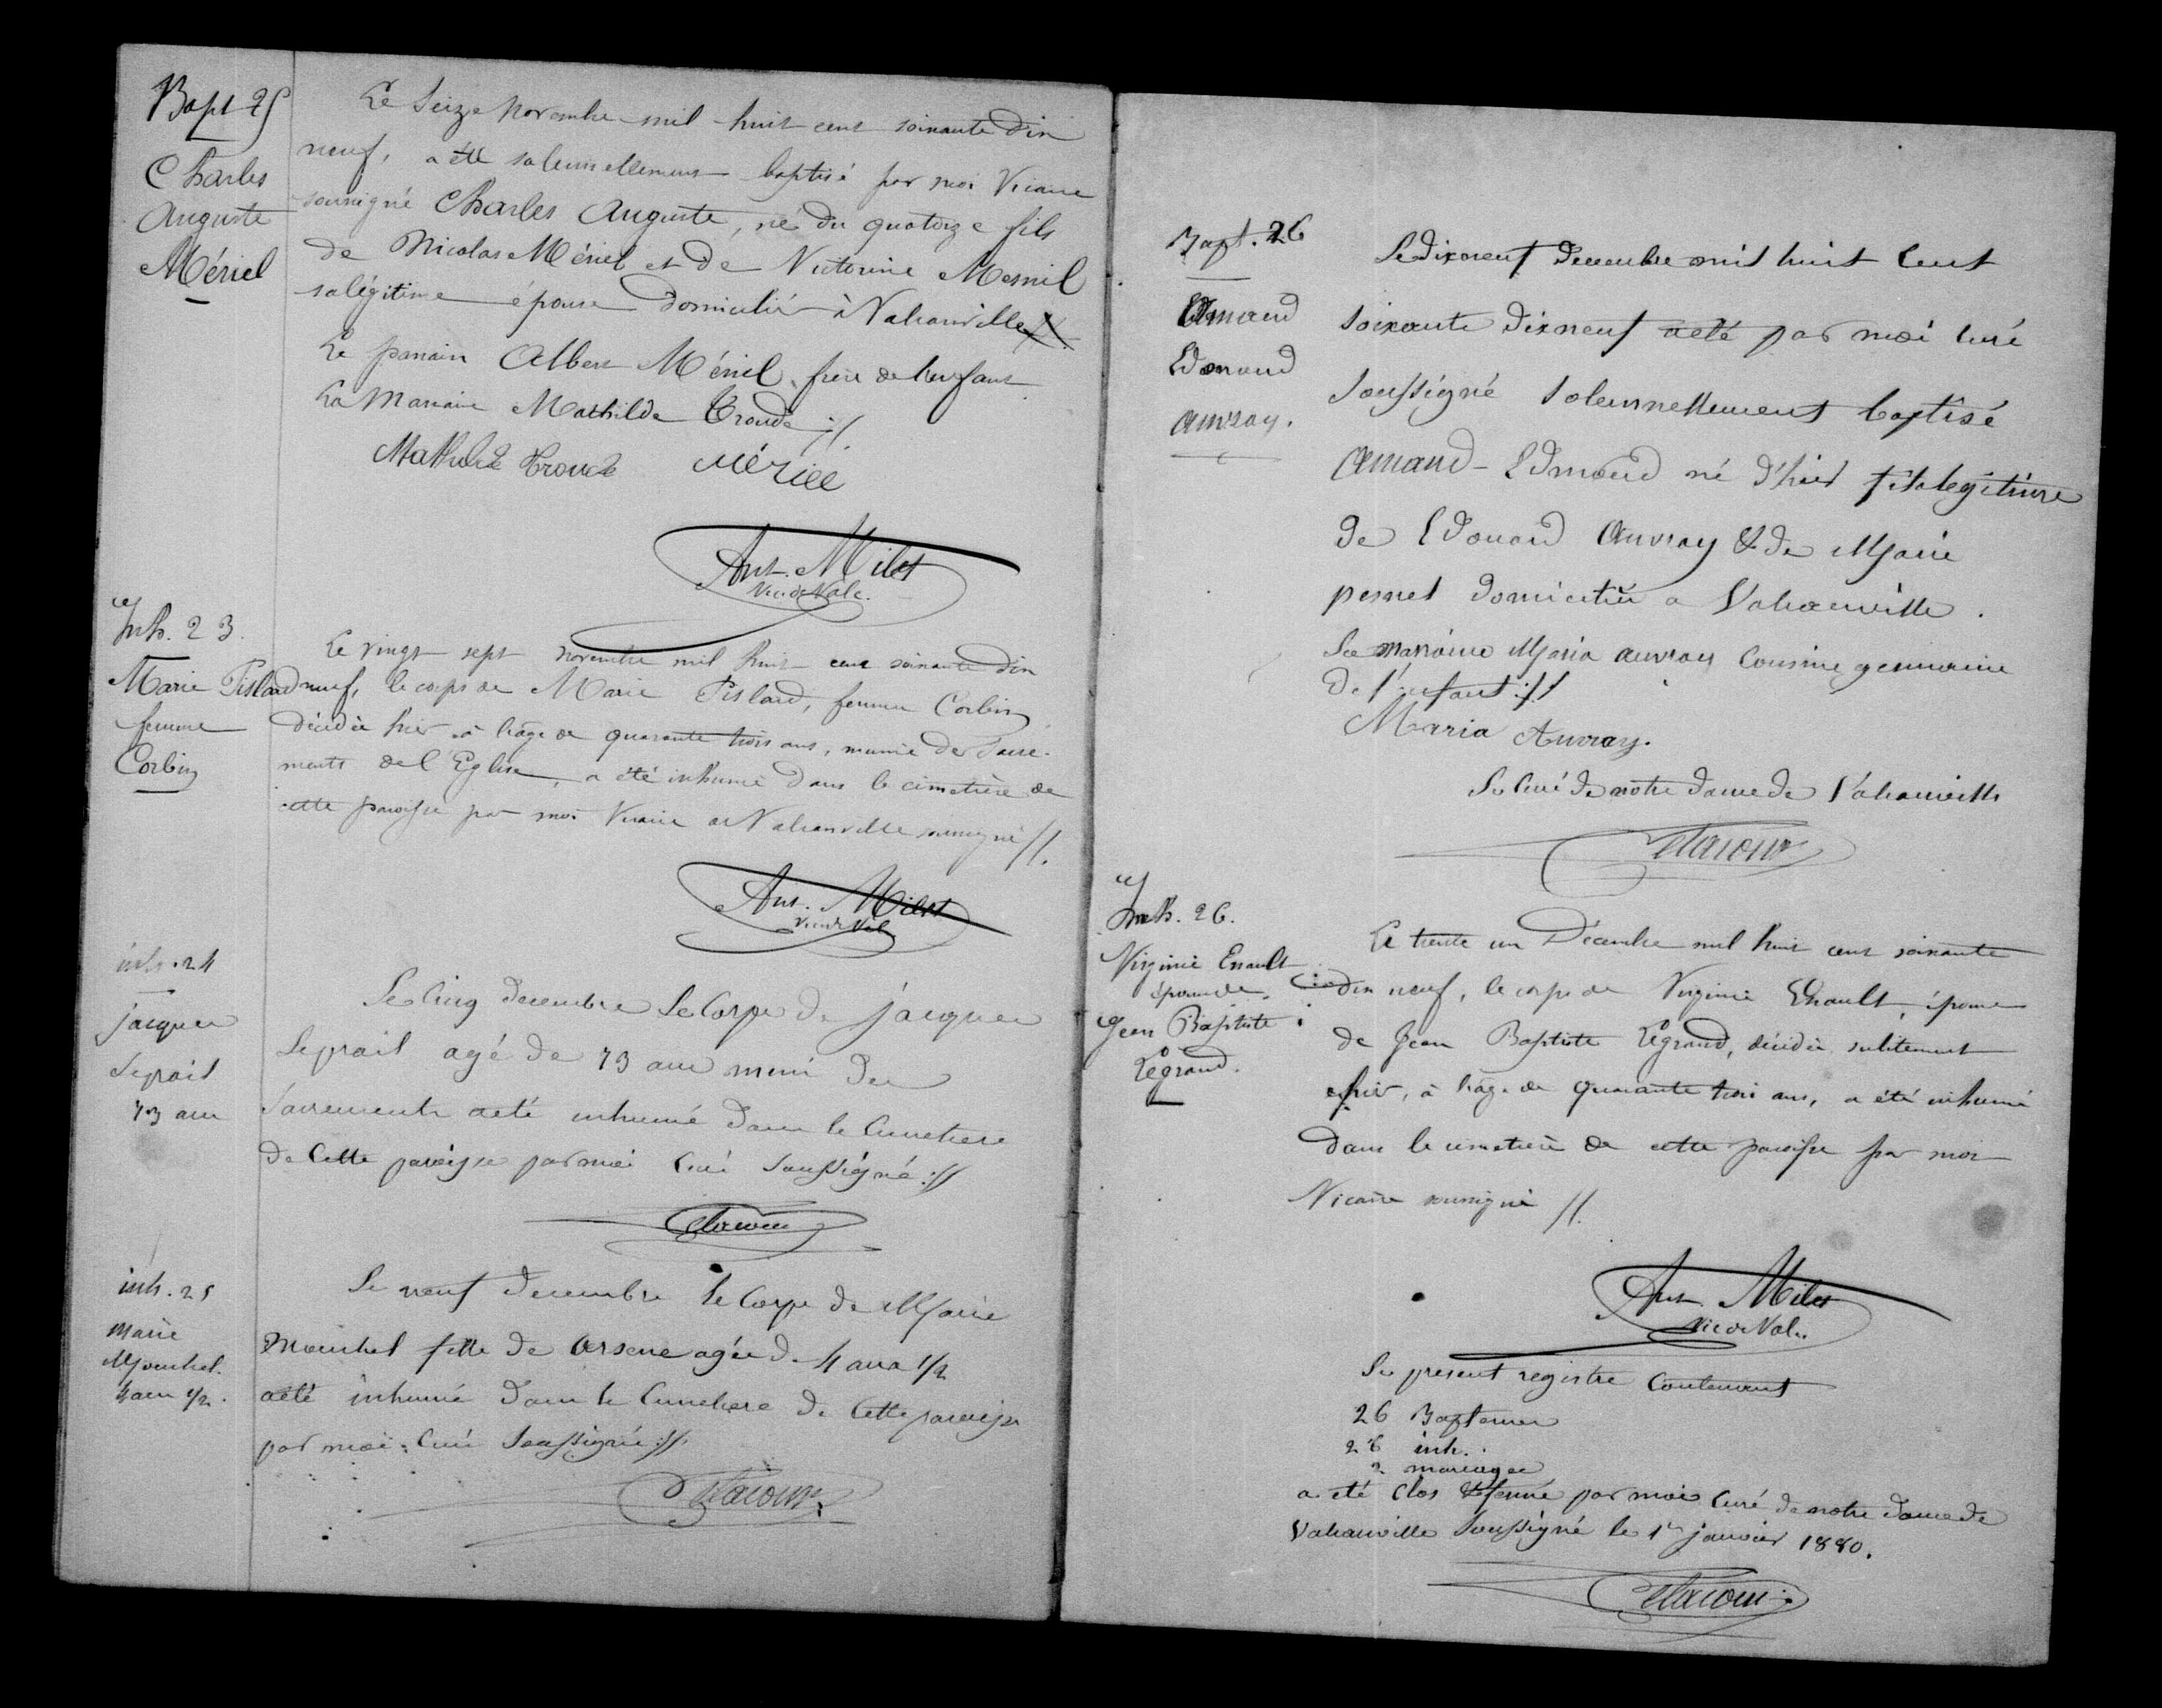 Bapt 25
Charles
Auguste
Mériel
Le Seize Novembre mil huit cent soixante dix
neuf, a été solennellement baptisé par moi Vicaire
soussigné Charles Auguste, né du quatorze fils
de Nicolas Mériel et de Victorine Mesnil
sa légitime épouse domiciliés à Valcanville
Le parrain Albert Mériel, frère de l'enfant
La Marraine Mathilde Troude //.
Mathilde Troude Mériel
Ant. Milet
Vic. de Valc.
Inh. 23.
Marie Pisland
femme
Corbin
Le vingt sept novembre mil huit cent soixante dix
neuf, le corps de Marie Pisland, femme Corbin
décédée hier à l'âge de quarante trois ans, munie des Sacre-
ments de l'Eglise, a été inhumé dans le cimetière de
cette paroisse par moi Vicaire de Valcanville soussigné //.
Ant. Milet
Vic. de Val.
inh. 24
jacques
Leprait
73 ans
Le Cinq decembre Le Corps de jacques
Leprait agé de 73 ans muni des
Sacrements aeté inhumé dans le Cimetiere
de Cette paroisse par moi Curé Soussigné ://
inh. 25
Marie
Mouchel.
4 ans 1/2.
Le neuf decembre le Corps de Marie
Mouchel fille de Arsene agée de 4 ans 1/2
aeté inhumé dans le Cimetiere de Cette paroisse
par moi Curé Soussigné ://.
Bapt. 26
Amand
Edmond
Auvray.
Le dixneuf Decembre mil huit Cent
soixante dixneuf aeté par moi Curé
Soussigné Solennellement baptisé
Amand-Edmond né d'hier fils légitime
de Edouard Auvray & de Marie
pesnel domiciliés a Valcanville.
La marraine Maria Auvray Cousine germaine
de l'enfant ://
Maria Auvray.
Le Curé de notre dame de Valcanville
Inh. 26.
Virginie Enault
épouse de
Jean Baptiste
Legrand.
Le trente un Décembre mil huit cent soixante
dix neuf, le corps de Virginie Enault, épouse
de Jean Baptiste Legrand, décédée subitement
hier, à l'âge de quarante trois ans, a été inhumé
dans le cimetière de cette paroisse par moi
Vicaire soussigné //.
Ant. Milet
Vic. de Val.
Le present registre Contenant
26 Baptemes
26 inh.
2 mariages
a eté Clos & fermé par moi Curé de notre dame de
Valcanville Soussigné le 1er janvier 1880.